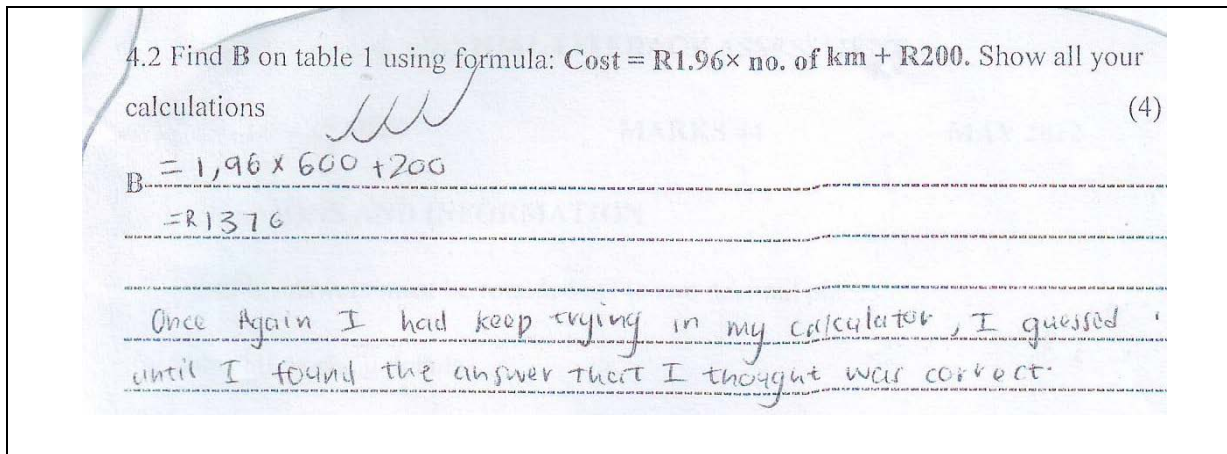 4.2 Find B on table 1 using formula: Cost = R1.96× no. of km + R200. Show all your
calculations (4)
B = 1,96 x 600 +200
=R1376
Once Again I had keep trying in my calculator, I guessed
until I found the answer that I thought was correct.